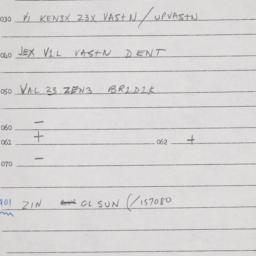 030 VI KENSX Z3X VASTN / UPVASTN
040 JEX VIL VASTN DENT
050 VAL 23 ZEN3 BRIDIK
060 -
061 + 062 +
070 -
901 ZIN CL SUN (/157080